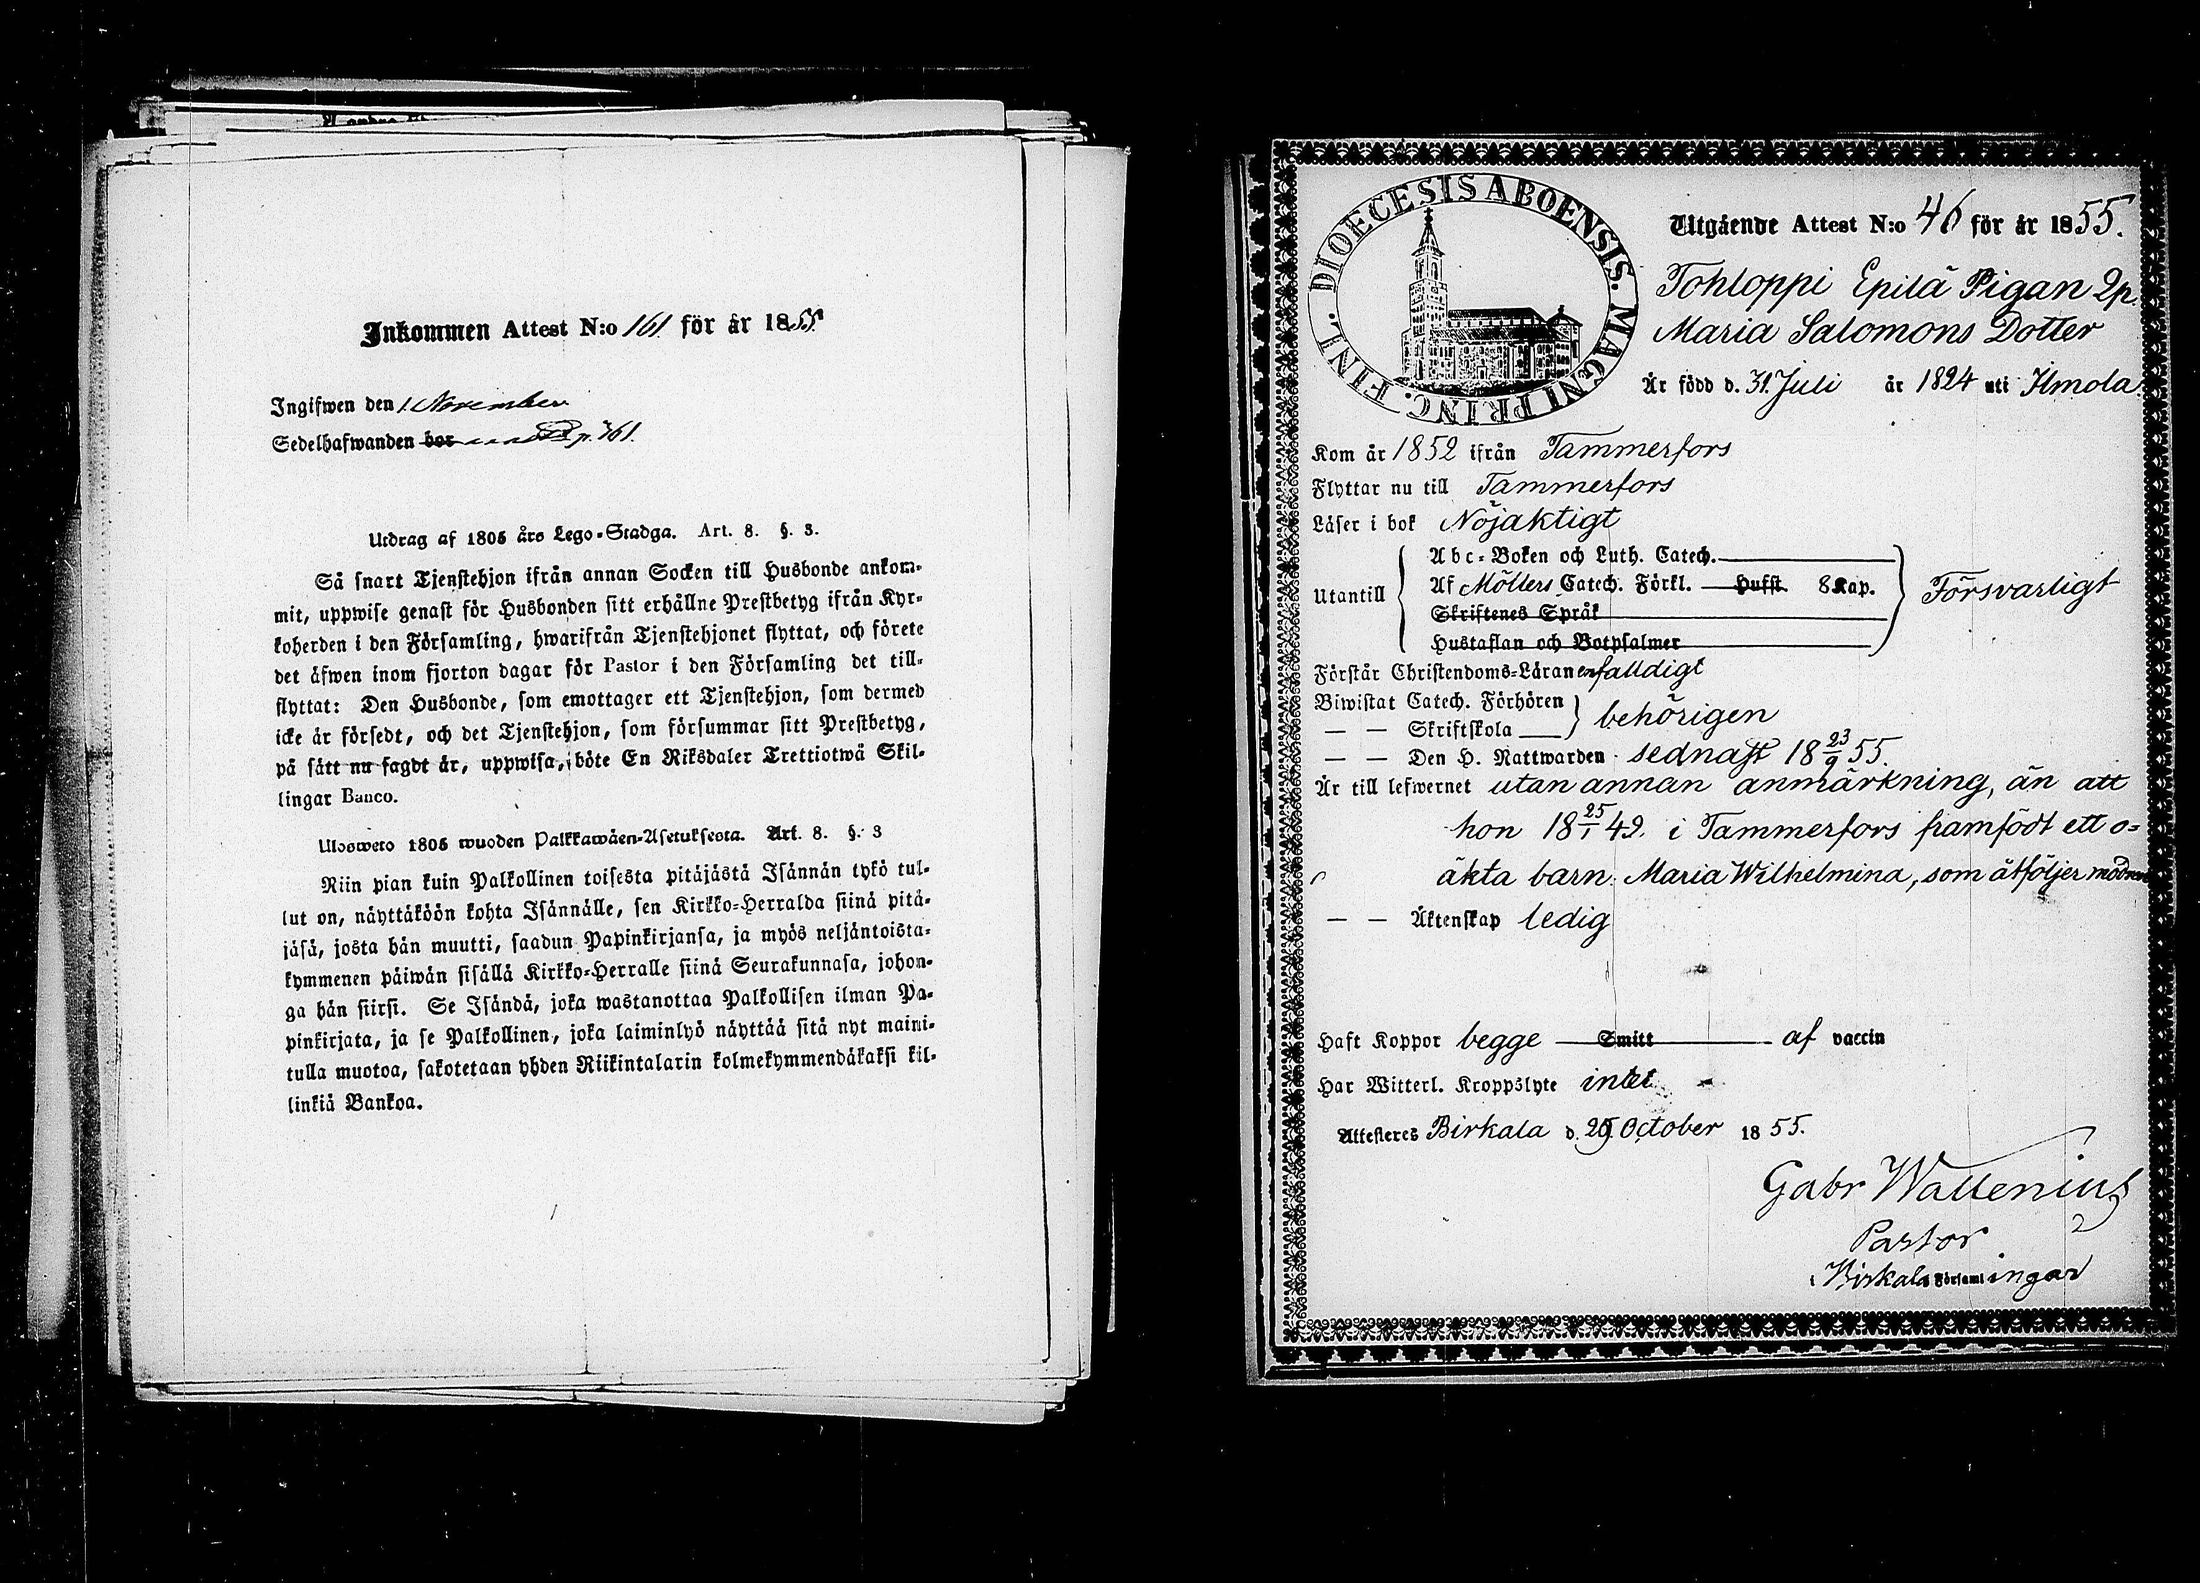 Inkommen Attest N:o 161 för år 1855
Ingifwen den 1. November
Sedelhafwanden bor p. 161.
Utdrag af 1805 års Lego-Stadga. Art. 8. §. 3.
Så snart Tjenstehjon ifrån annan Socken till Husbonde ankom-
mit, uppwise genast för Husbonden sitt erhållne Prestbetyg ifrån Kyr-
koherden i den Församling, hwarifrån Tjenstehjonet flyttat, och förete
det äfwen inom fjorton dagar för Pastor i den Församling det till-
flyttat: Den Husbonde, som emottager ett Tjenstehjon, som dermed
icke är försedt, och det Tjenstehjon, som försummar sitt Prestbetyg,
på sätt nu sagdt är, uppwisa, böte En Riksdaler Trettiotwå Skil-
lingar Banco.
Ulosweto 1805 wuoden Palkkawäen-Asetuksesta. Art. 8. §. 3
Niin pian kuin Palkollinen toisesta pitäjästä Isännän tykö tul-
lut on, näyttäköön kohta Isännälle, sen Kirkko-Herralda siinä pitä-
jäsä, josta hän muutti, saadun Papinkirjansa, ja myös neljäntoista-
kymmenen päiwän sisällä Kirkko-Herralle siinä Seurakunnasa, johon-
ga hän siirsi. Se Isändä, joka wastanottaa Palkollisen ilman Pa-
pinkirjata, ja se Palkollinen, joka laiminlyö näyttää sitä nyt maini-
tulla muotoa, sakotetaan yhden Riikintalarin kolmekymmendäkaksi kil-
linkiä Bankoa.
DIOECESIS ABOENSIS. MAGNI PRINC. FINL.
Utgående Attest N:o 46 för år 1855.
Tohloppi Epilä Pigan 2p.
Maria Salomons Dotter
Är född d. 31. Juli år 1824 uti Ilmola
Kom år 1852 ifrån Tammerfors
Flyttar nu till Tammerfors
Läser i bok Nöjaktigt
Utantill
Abc-Boken och Luth. Catech.
Af Möllers Catech. Förkl. Hufst. 8 Kap.
Skriftenes Språk
Hustaflan och Botpsalmer
Försvarligt
Förstår Christendoms-Läran enfalldigt
Biwistat Catech. Förhören
— — Skriftskola
behörigen
— — Den H. Nattwarden sednast 18 23/9 55.
Är till lefwernet utan annan anmärkning, än att
hon 18 25/1 49. i Tammerfors framfödt ett o-
äkta barn: Maria Wilhelmina, som åtföljer modren
— — Äktenskap ledig
Haft Koppor begge Smitt af vaccin
Har Witterl. Kroppslyte intet
Attesteres Birkala d. 25 October 1855.
Gabr Wallenius
Pastor
Birkala Församlingar